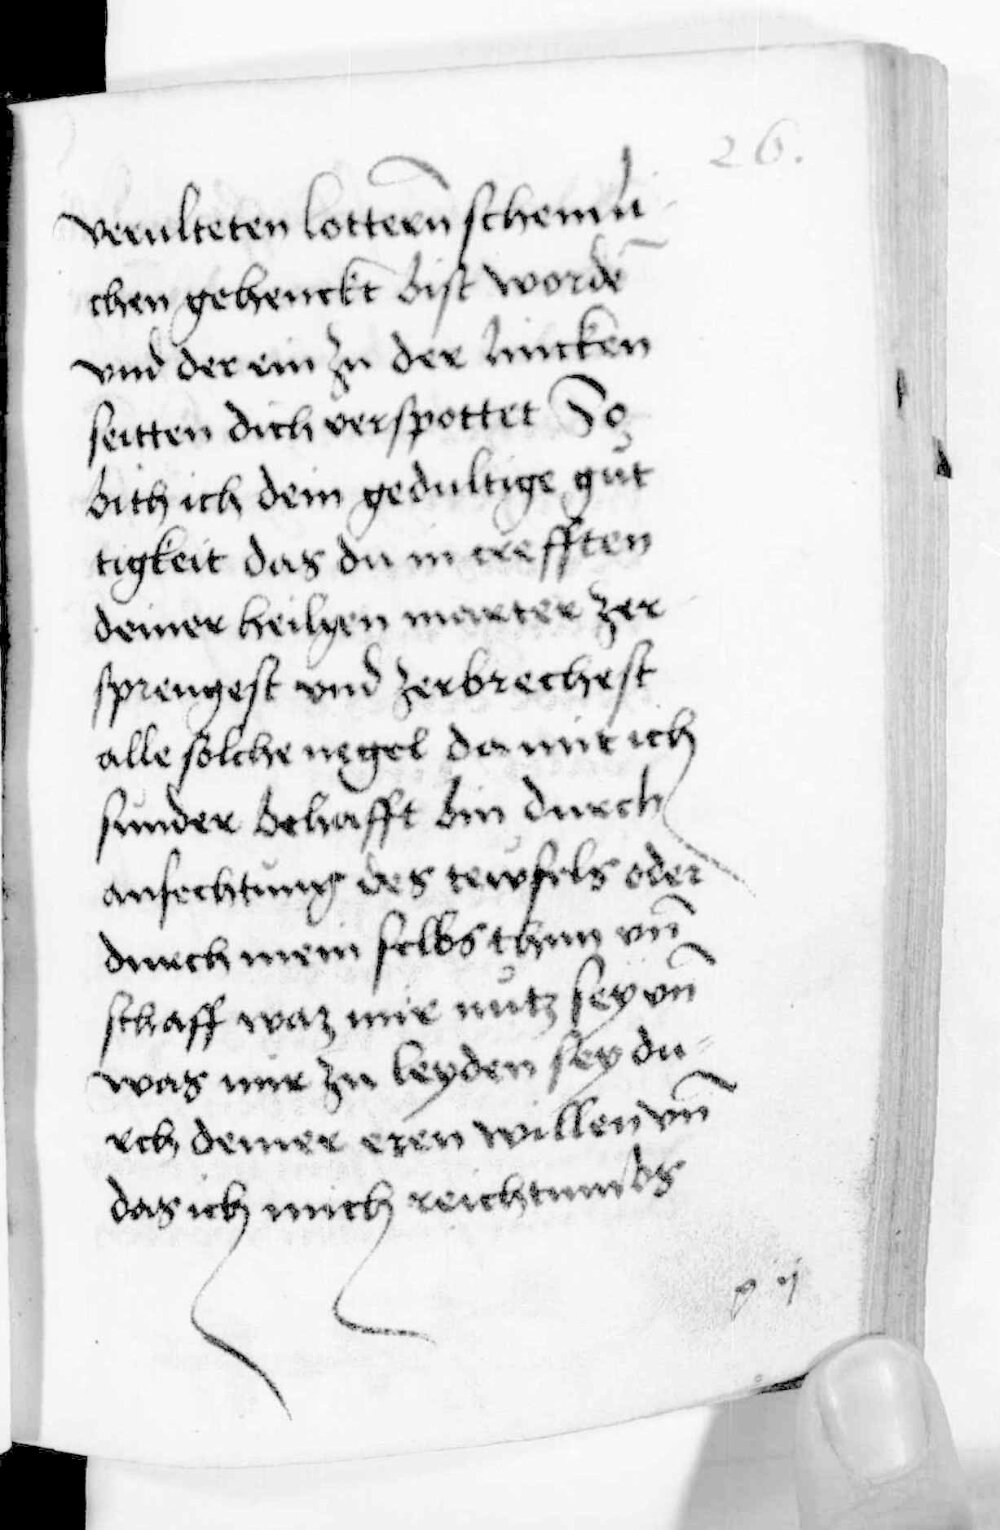 26.
verulteten lottern̄ schemli
chen gehenckt bist wordē
vnd der ein zu der lincken
seitten dich verspottet So
bith ich dein gedultige gůt
tigkeit das du in crefften
deiner heilgen marter zer
sprengest vnd zerbrechest
alle sölche negel da mit ich
sunder behafft bin durch
anfechtung des tewfels oder
durch mein selbs thun vn̄
schaff waz mir nutz sey vn̄
was mir zu leyden sey du⸗
rch deiner eren willen vn̄
das ich mich reichtumbs
ij